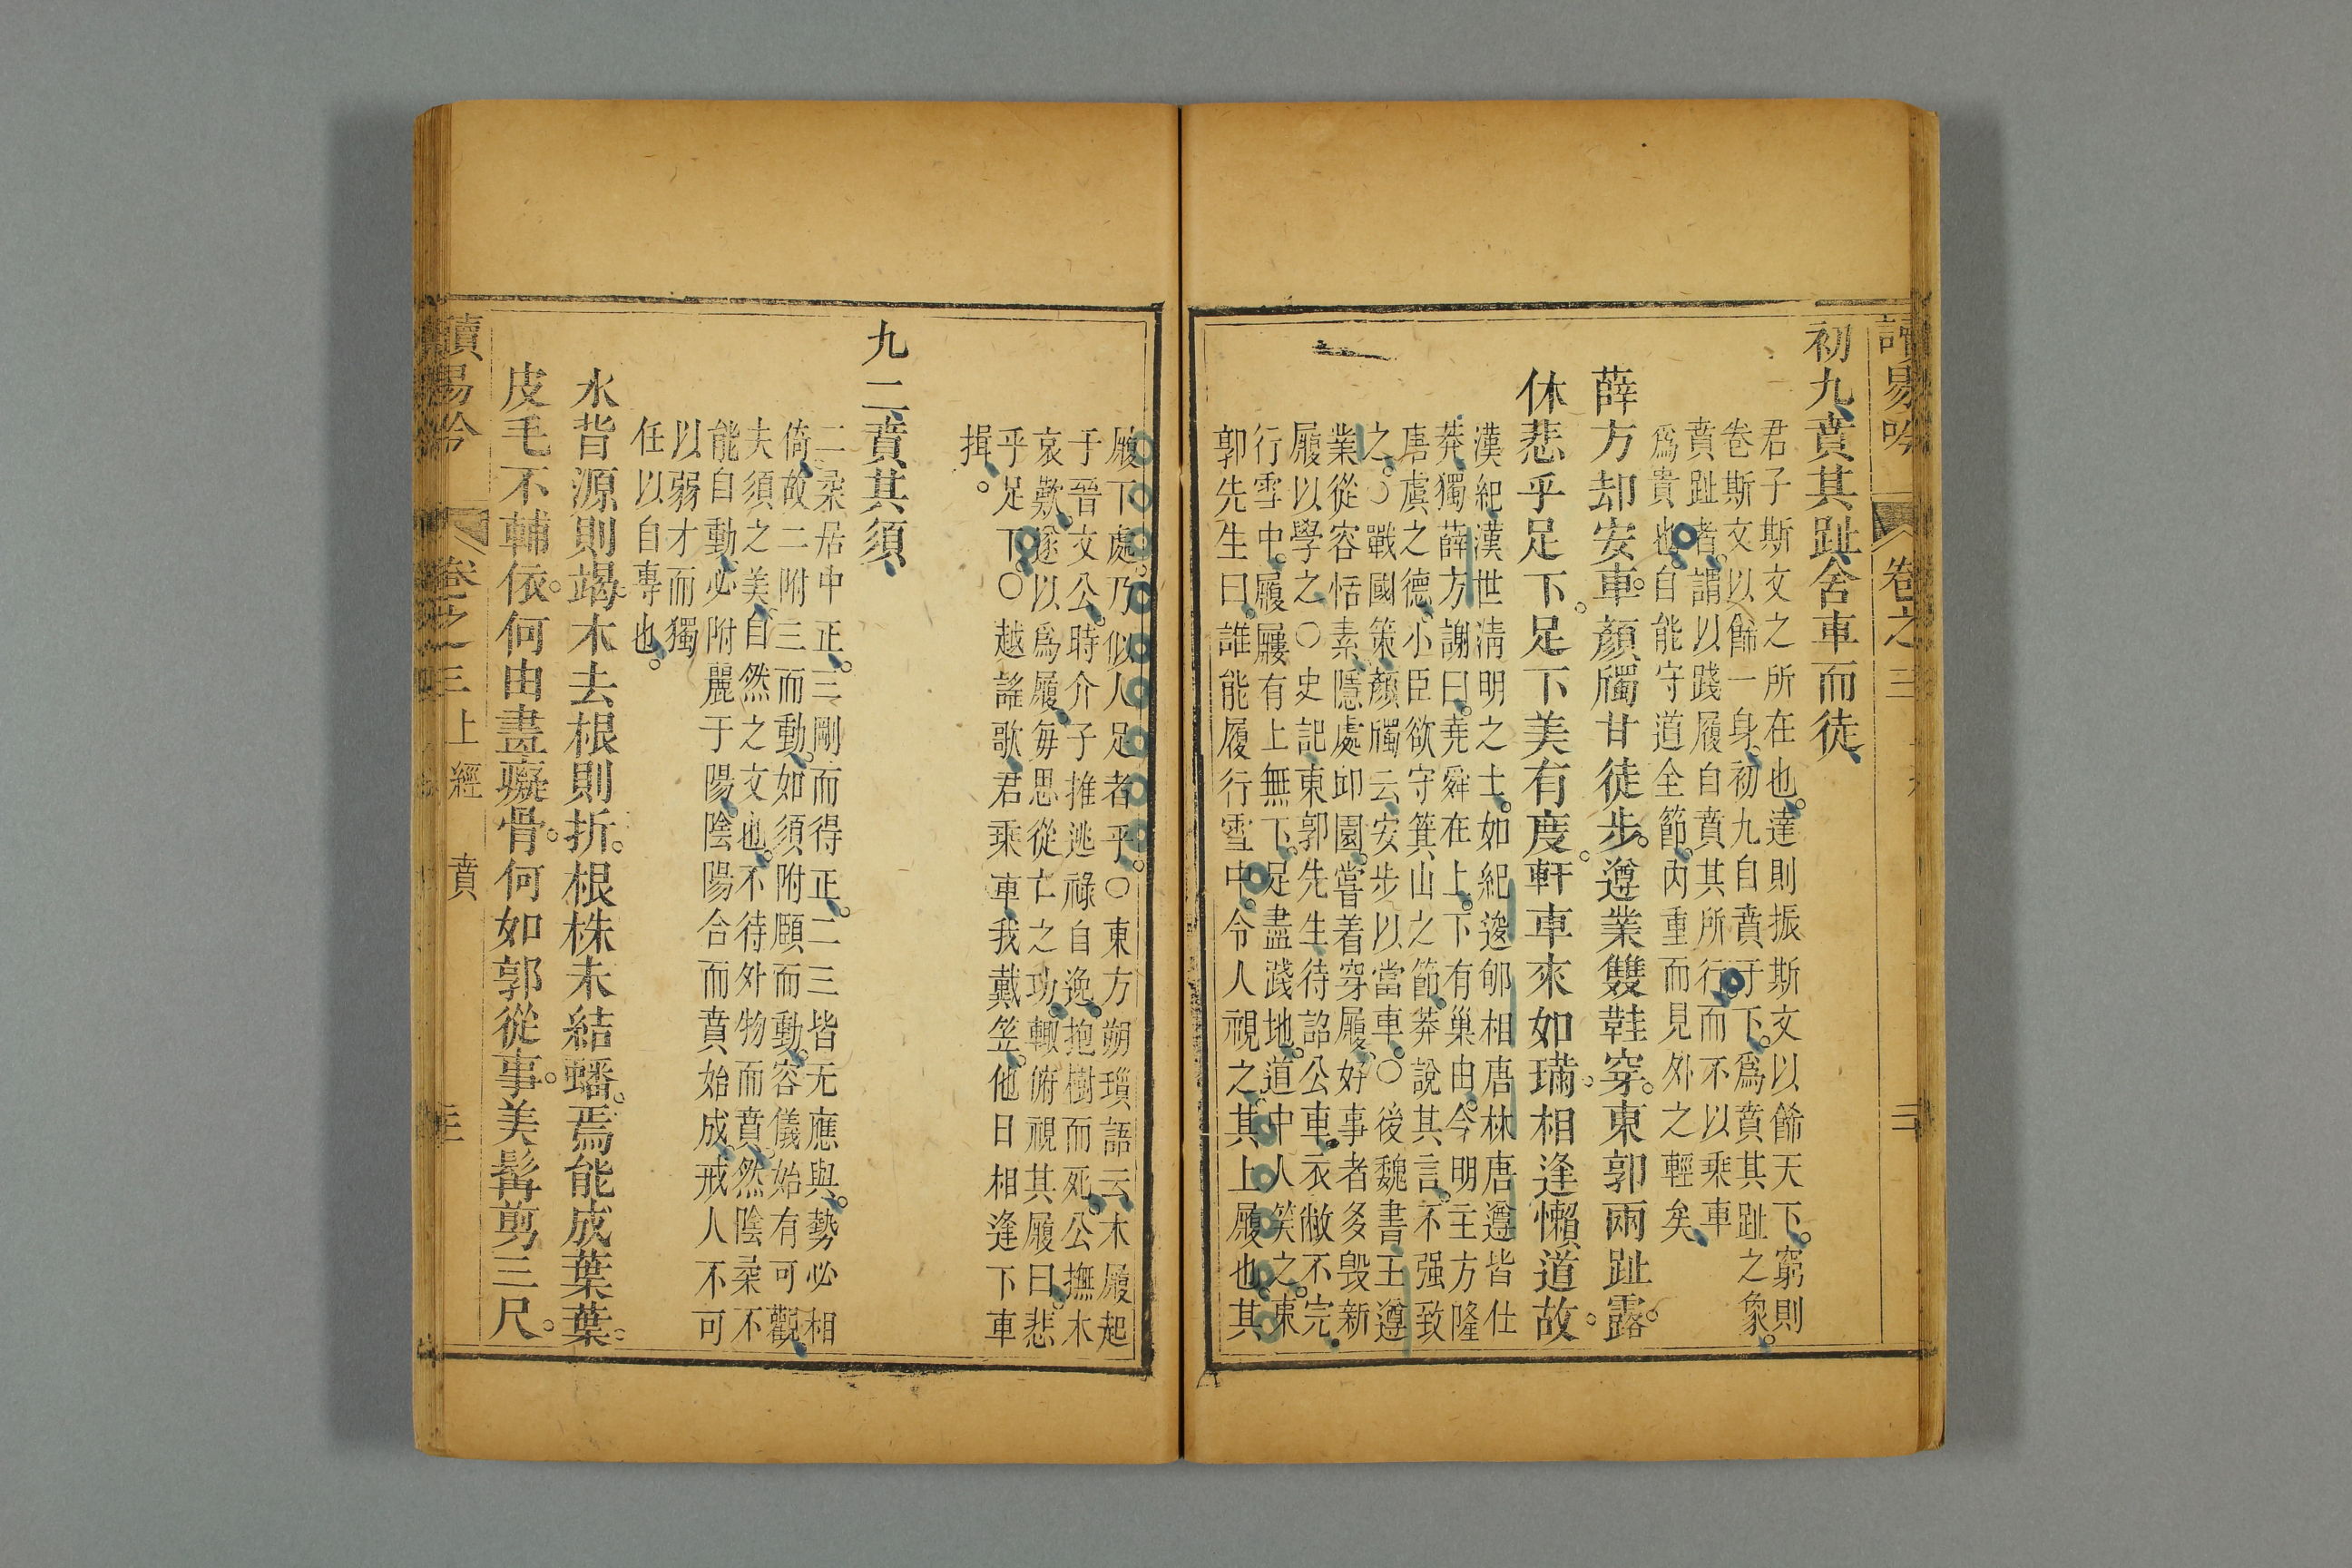 讀易吟 卷之三
初九賁其趾舍車而徒
君子斯文之所在也達則振斯文以餙天下窮則
卷斯文以餙一身初九自賁于下爲賁其趾之象
賁趾者謂以踐履自賁其所行而不以乗車
爲貴也自能守道全節内重而見外之輕矣
薛方却安車。顏斶甘徒步。遵業雙鞋穿。東郭兩趾露。
休悲乎足下。足下美有度。軒車來如璊。相逢懶道故。
漢紀漢世清明之士如紀逡郇相唐林唐遵皆仕
莽獨薛方謝曰堯舜在上下有巢由今明主方隆
唐虞之德小臣欲守箕山之節莽說其言不强致
之○戰國策顏斶云安步以當車○後魏書王遵
業從容恬素隱處邱園嘗着穿履好事者多毁新
履以學之○史記東郭先生待詔公車衣敝不完
行雪中履屨有上無下足盡踐地道中人笑之東
郭先生曰誰能履行雪中令人視之其上履也其
履下處乃似人足者乎○東方朔瑣語云木履起
于晉文公時介子推逃祿自逸抱樹而死公撫木
哀歎遂以爲履毎思從亡之功輙俯視其履曰悲
乎足下○越謠歌君乗車我戴笠他日相逢下車
揖
九二賁其須
二柔居中正三剛而得正二三皆无應與勢必相
倚故二附三而動如須附頤而動容儀始有可觀
夫須之美自然之文也不待外物而賁然陰柔不
能自動必附麗于陽陰陽合而賁始成戒人不可
以弱才而獨
任以自專也
水背源則竭。木去根則折。根株未結蟠。焉能成葉葉。
皮毛不輔依。何由盡癡骨。何如郭從事。美髯剪三尺。
讀易吟 卷之三 上經 賁